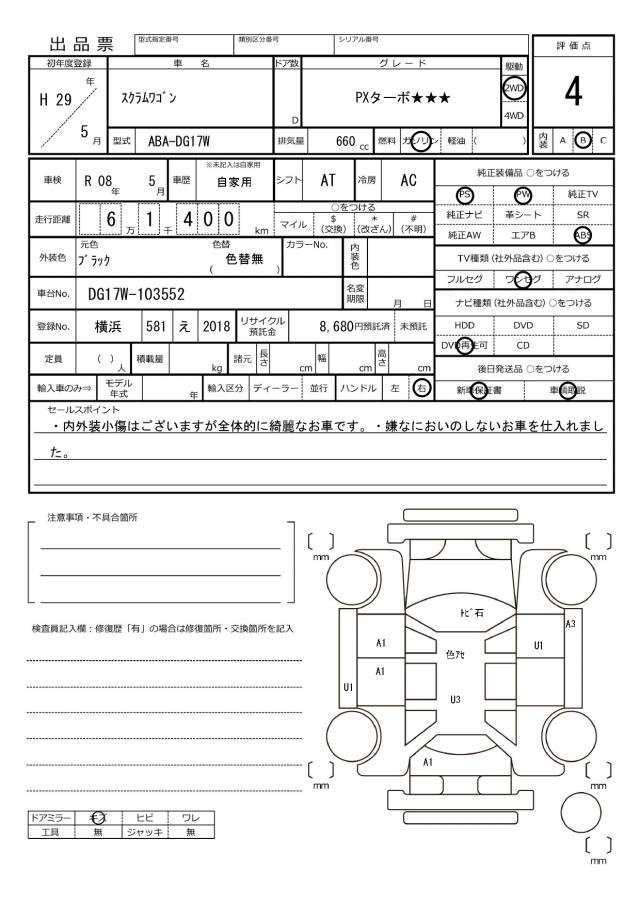 出品票
型式指定番号 類別区分番号 シリアル番号
評価点
初年度登録 車名 ドア数 グレード 駆動
H 29 年 5 月
スクラムワゴン D PXターボ★★★ 2WD 4WD
4
型式 ABA-DG17W 排気量 660 cc 燃料 ガソリン 軽油 ( )
内装 A B C
車検 R 08 年 5 月 車歴 ※未記入は自家用 自家用 シフト AT 冷房 AC
純正装備品 ○をつける
PS PW 純正TV
純正ナビ 革シート SR
純正AW エアB ABS
走行距離 6 万 1 千 4 0 0 km
○をつける
マイル $(交換) *(改ざん) #(不明)
外装色 元色 ブラック 色替 ( 色替無 ) カラーNo. 内装色
TV種類(社外品含む) ○をつける
フルセグ ワンセグ アナログ
車台No. DG17W-103552 名変期限 月 日
ナビ種類(社外品含む) ○をつける
登録No. 横浜 581 え 2018 リサイクル預託金 8,680円預託済 未預託
HDD DVD SD
DVD再生可 CD
定員 ( ) 人 積載量 kg 諸元 長さ cm 幅 cm 高さ cm
後日発送品 ○をつける
新車保証書 車輌取説
輸入車のみ⇒ モデル年式 年 輸入区分 ディーラー 並行 ハンドル 左 右
セールスポイント
・内外装小傷はございますが全体的に綺麗なお車です。・嫌なにおいのしないお車を仕入れまし
た。
注意事項・不具合箇所
検査員記入欄：修復歴「有」の場合は修復箇所・交換箇所を記入
mm
mm
トビ石
A3
A1
U1
色アセ
A1
U1
U3
A1
mm
mm
mm
ドアミラー キズ ヒビ ワレ
工具 無 ジャッキ 無